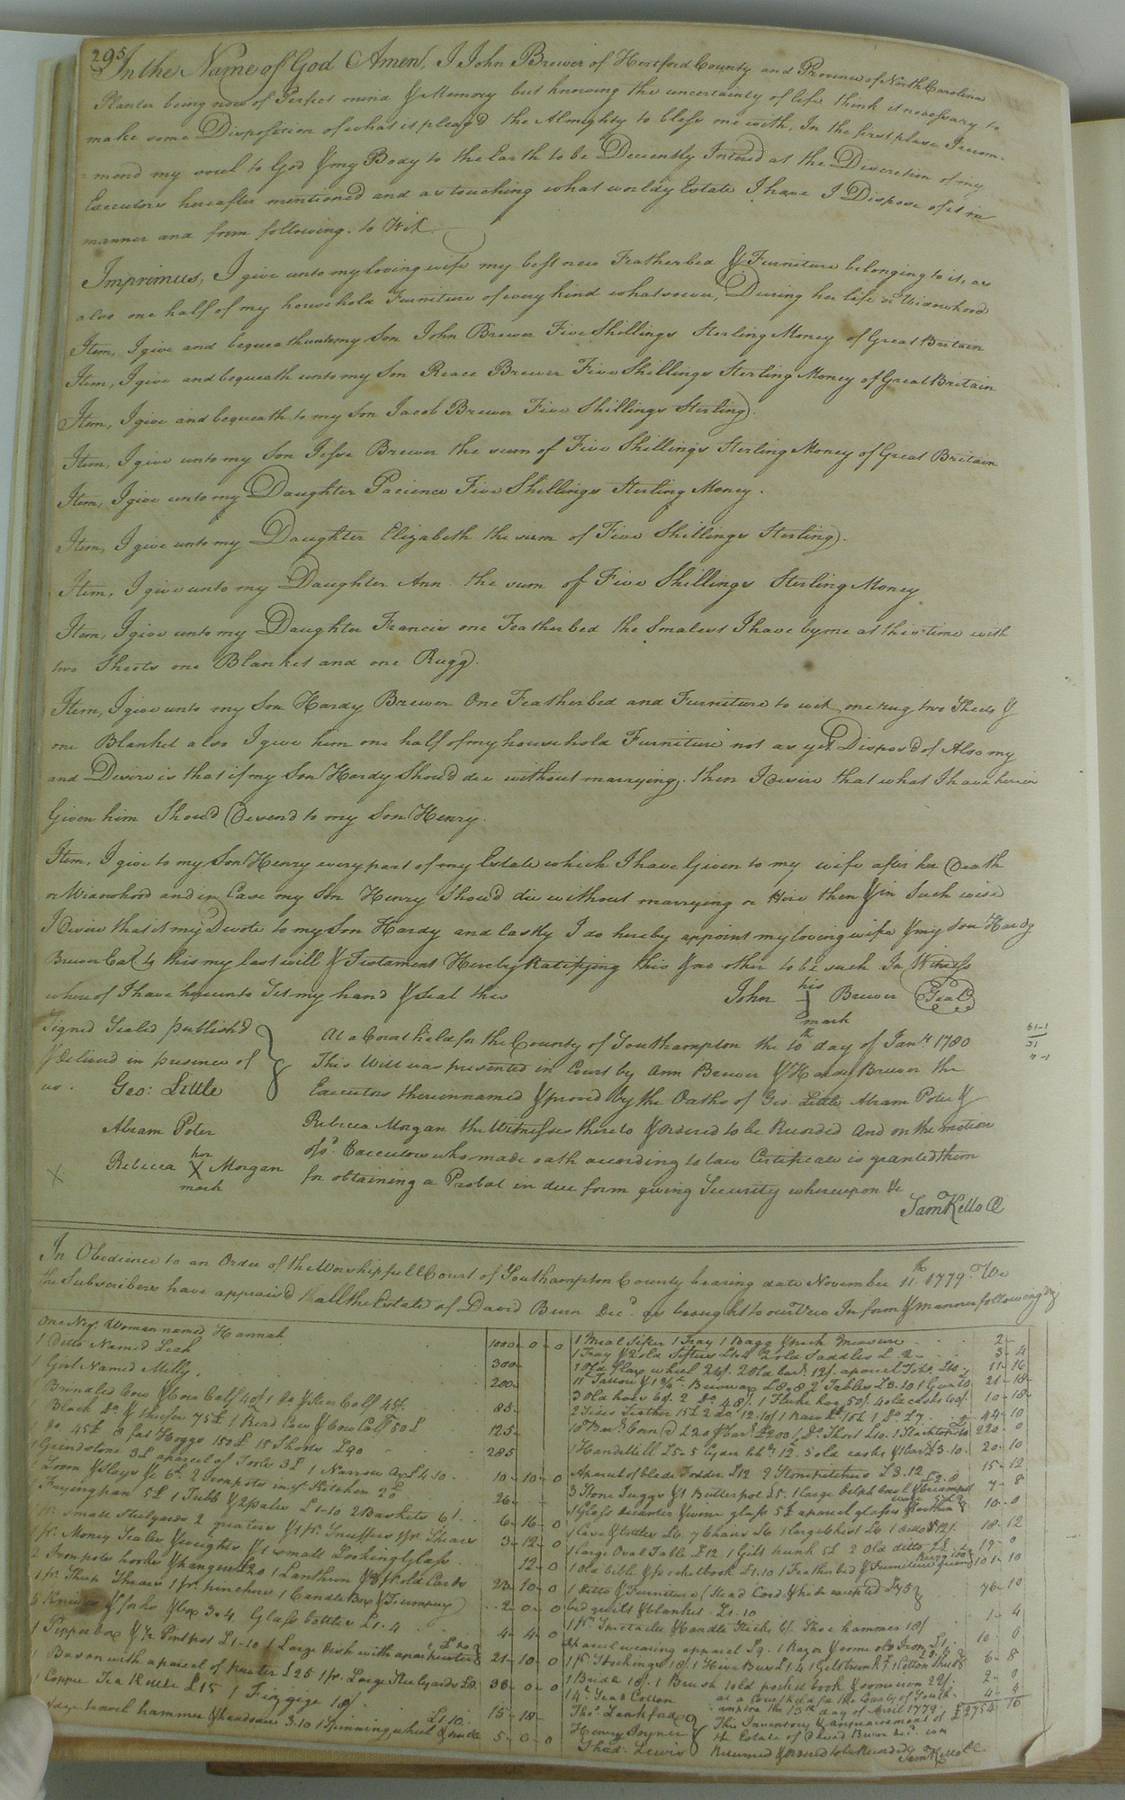 295
In the Name of God Amen, I John Brewer of Hertford County and Province of North Carolina
Planter being now of Perfect mind & Memory but knowing the uncertainty of life think it necessary to
make some Disposition of what it pleas'd the Almighty to bless me with, In the first place I recom-
mend my soul to God & my Body to the Earth to be Decently Intered at the Discretion of my
Executors hereafter mentioned and as touching what worldy Estate I have I Dispose of it in
manner and form following. to Wit
Imprimus, I give unto my loving wife my best new Featherbed & Furniture belonging to it, as
also one half of my household Furniture of every kind whatsoever, During her life or Widowhood
Item, I give and bequeath unto my Son John Brewer Five Shillings Sterling Money of Great Britain
Item, I give and bequeath unto my Son Reace Brewer Five Shillings Sterling Money of Great Britain
Item, I give and bequeath to my Son Jacob Brewer Five Shillings Sterling.
Item, I give unto my Son Jesse Brewer the sum of Five Shillings Sterling Money of Great Britain
Item, I give unto my Daughter Pacience Five Shillings Sterling Money.
Item, I give unto my Daughter Elizabeth the sum of Five Shillings Sterling.
Item, I give unto my Daughter Ann the sum of Five Shillings Sterling Money
Item, I give unto my Daughter Francis one Featherbed the Smalest I have by me at this time with
two Sheets one Blanket and one Rugg.
Item, I give unto my Son Hardy Brewer One Featherbed and Furniture to wit, one rug two Sheets &
one Blanket also I give him one half of my household Furniture not as yet Dispos'd of Also my
and Desire is that if my Son Hardy Should die without marrying. then I desire that what I have herein
Given him Should Decend to my Son Henry.
Item, I give to my Son Henry every part of my Estate which I have Given to my wife after her Death
or Widowhood and in Case my Son Henry Should die without marrying or Heir then & in Such wise
I Desire that it my Devote to my Son Hardy and lastly I do hereby appoint my loving wife & my Son Hardy
Brewer to this my last will & Testament Hereby Ratifying this & no other to be such In Witness
whereof I have hereunto Set my hand & Seal this
his
John Brewer Seal
mark
Signed Sealed publish'd
& Delivered in presence of
us.
Geo: Little
Abram Poter
her
Rebecca X Morgan
mark
X
At a Court held for the County of Southampton the 10th day of Jan.y 1780
This Will was presented in Court by Ann Brewer & Hardy Brewer the
Executors therein named & proved by the Oaths of Geo. Little Abram Poter &
Rebecca Morgan the Witnesses thereto & Ordered to be Recorded And on the motion
of sd. Executors who made oath according to law Certificate is granted them
for obtaining a Probat in due form giving Security whereupon &c
Saml Kello C
In Obedience to an Order of the Worshipfull Court of Southampton County bearing date November 11th 1779. We
the Subscribers have appraised all the Estate of David Burn Decd. as brought to our View In form & manner following
One Negr. Woman named Hannah 1000-0-0
1 Ditto Named Leah 300-
1 Girl Named Milly 200-
Brindles Cow & Cow Calf 40£ 1 do & Steer Calf 45£ 85-
Black do & 1 heifer 75£ 1 Read Cow & Cow Calf 50£ 125-
do 45£ 9 fat Hoggs 150£ 15 Shoats £90 285
Grindstone 3£ aparcel of Tools 3£ 1 Narrow Ax £4.10 10-10-0
Loom & Sleys £6 2 Ironpots in ye Kitchen 20£ 26-
Fryingpan 5£ 1 Tubb & 2 pales £1-10 2 Baskets 6/. 6-16-0
1 pr. Small Stilyards 2 quarters & 1 pr. Snuffers 1 pr. Shears 3-12-0
1 pr. Money Scales & weights & 1 small Looking Glass 12-0
2 Ironpots hooks & hangers £20 1 Lanthorn & 3 pr. old Cards 23-10-0
1 pr. Sheep Shears 1 pr. pinchers 1 Candle Box & Trumpery 2-0-0
Knives & forks & box 3.4 Glass bottles £1-4 4-4-0
1 Pepperbox & ½ Pintpot £1-10 1 Large Dish with aparcel pewter £20 21-10-0
1 Bason with a parcel of pewter £25 1 pr. Large Steelyards £5 30-0-0
1 Copper Tea Kettle £15 1 Fizgige 18/ 15-18-
hammer & headsaw 3.10 1 Spinning wheel & £1.10 5-0-0
1 Meal Sifter 1 Tray 1 Bagg & peck Measure 2-
1 Tray & 2 old Sifters 2 old Saddles £2 3-4
1 Old Flax wheel 24/. 2 Old bar. 12/. aparcel Tobo. £10 11-16
11
3 Old hoes 6/. 2 Do 48/. 1 Fluke hoe 50/. 4 old casks 40/. 10-18-
44-10
220-0
1 Handmill £5-5 Cyder hhds 12. 5 old casks 20-10
Aparcel of blade Fodder £12 2 Stone pitchers £3.12 15-12
3 Stone Juggs & 1 Butterpot £5. 1 large Delph bowl 7-8
1 Glass decanter & wine glass 5£ aparcel glasses 10-0
1 Case & bottles £6 7 Chairs £6 1 large Chest £6 1 ditto 12/. 18-12
1 large Oval Table £12 1 Gilt trunk 5£ 2 Old ditto 19-0
1 old bible & pocketbook £1.10 1 Featherbed & Furniture 101-10
1 ditto & Furniture (Stead Cord & hide excepted) £75 76-10
bed quilt & blanket £1.10
1 pr. Spectacles & handle Stick 6/ Shoe hammer 18/ 1-4
Aparcel wearing apparel £9. 1 Razor & some old Iron £1 10-0
1 pr. Stockings 18/ 1 6-8
1 Bridle 18/. 1 Brush 1 old pocket book 2-0
14 lb. Seed Cotton 4-4
£2754-16
Thos. Lankford
Henry Joyner
Thad. Lewis
at a Court held for the County of South-
ampton the 13th day of April 1779
This Inventory & appraisement of
the Estate of David Burn decd. was
Returned & Ordered to be Recorded
Saml Kello C